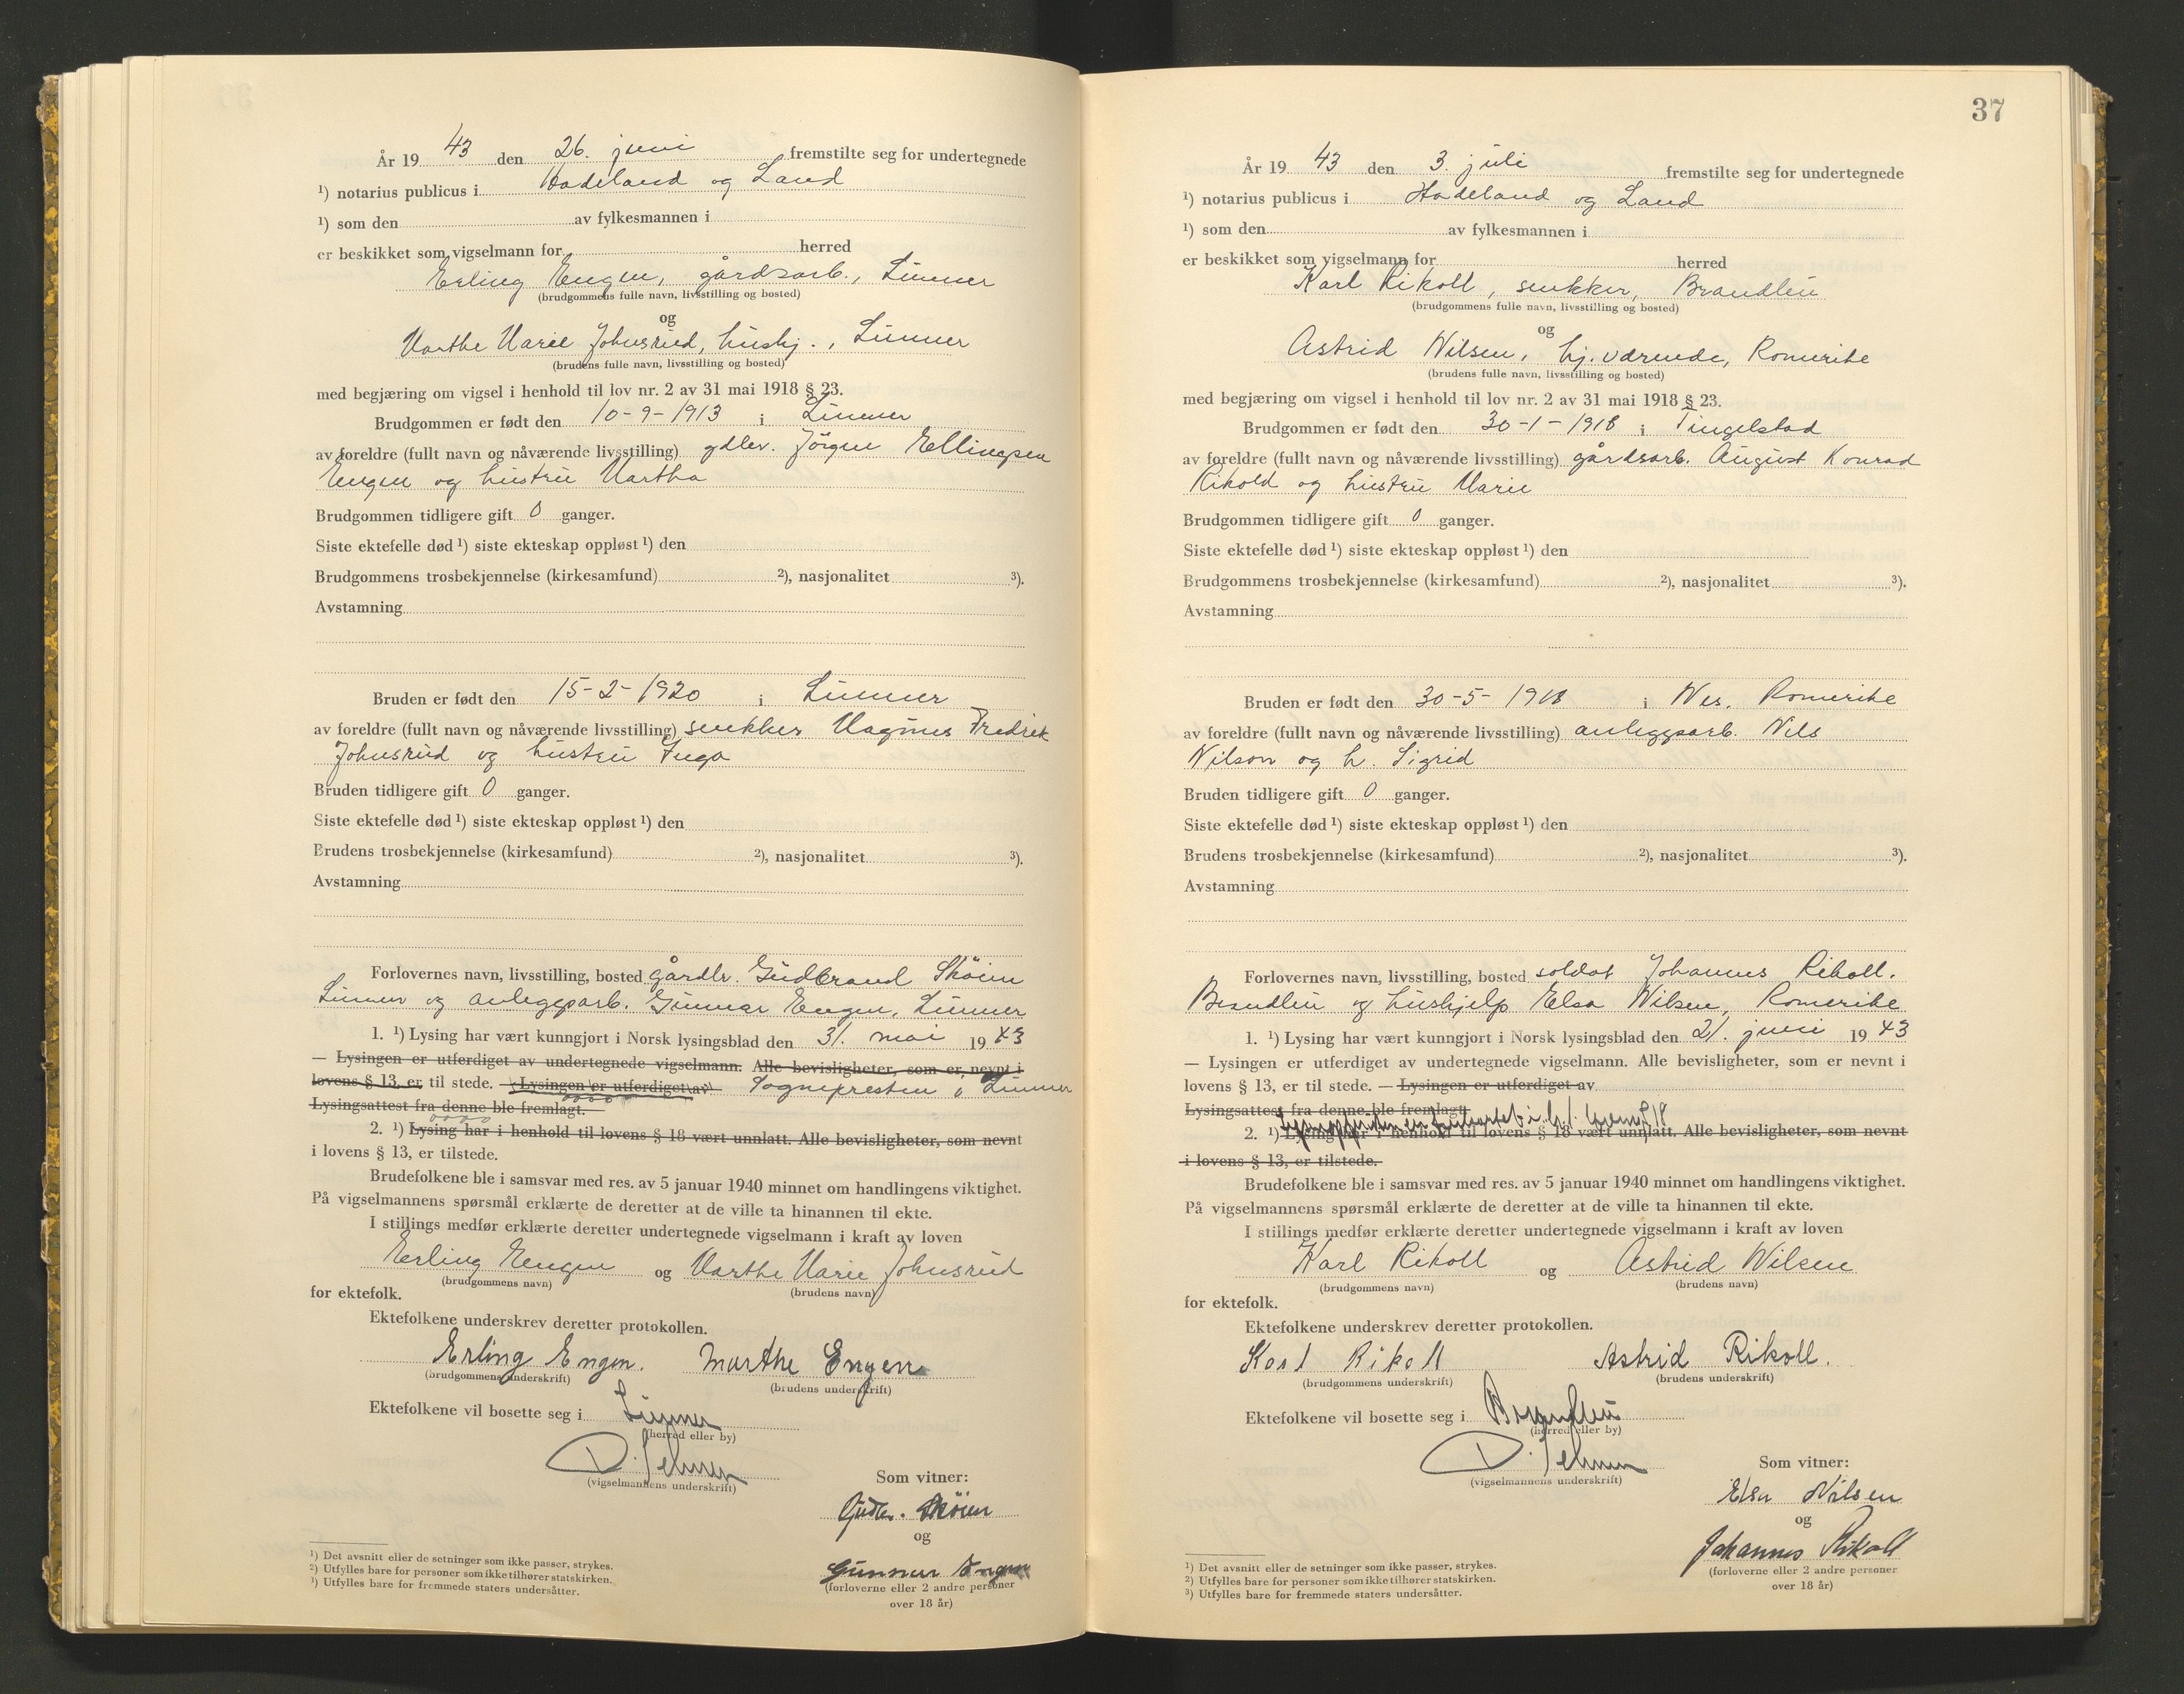 År 19 43 den 26. juni fremstilte seg for undertegnede
¹) notarius publicus i Hadeland og Land
¹) som den av fylkesmannen i
er beskikket som vigselmann for herred
Erling Engen, gårdsarb., Lunner
(brudgommens fulle navn, livsstilling og bosted)
og
Marthe Marie Johnsrud, hushj., Lunner
(brudens fulle navn, livsstilling og bosted)
med begjæring om vigsel i henhold til lov nr. 2 av 31 mai 1918 § 23.
Brudgommen er født den 10-9-1913 i Lunner
av foreldre (fullt navn og nåværende livsstilling) Jörgen Ellingsen
Engen og hustru Martha
Brudgommen tidligere gift 0 ganger.
Siste ektefelle død ¹) siste ekteskap oppløst ¹) den
Brudgommens trosbekjennelse (kirkesamfund) ²), nasjonalitet ³).
Avstamning
Bruden er født den 15-2-1920 i Lunner
av foreldre (fullt navn og nåværende livsstilling) snekker Magnus Fredrik
Johnsrud og hustru Inga
Bruden tidligere gift 0 ganger.
Siste ektefelle død ¹) siste ekteskap oppløst ¹) den
Brudens trosbekjennelse (kirkesamfund) ²), nasjonalitet ³).
Avstamning
Forlovernes navn, livsstilling, bosted gårdbr. Gudbrand Sköien
Lunner og anleggsarb. Gunnar Engen, Lunner
1. ¹) Lysing har vært kunngjort i Norsk lysingsblad den 31. mai 19 43
— Lysingen er utferdiget av undertegnede vigselmann. Alle bevisligheter, som er nevnt i
lovens § 13, er til stede. — Lysingen er utferdiget av Sognepresten i Lunner
Lysingsattest fra denne ble fremlagt.
2. ¹) Lysing har i henhold til lovens § 18 vært unnlatt. Alle bevisligheter, som nevnt
i lovens § 13, er tilstede.
Brudefolkene ble i samsvar med res. av 5 januar 1940 minnet om handlingens viktighet.
På vigselmannens spørsmål erklærte de deretter at de ville ta hinannen til ekte.
I stillings medfør erklærte deretter undertegnede vigselmann i kraft av loven
Erling Engen og Marthe Marie Johnsrud
(brudgommens navn) (brudens navn)
for ektefolk.
Ektefolkene underskrev deretter protokollen.
Erling Engen. Marthe Engen
(brudgommens underskrift) (brudens underskrift)
Ektefolkene vil bosette seg i Lunner
(herred eller by)
(vigselmannens underskrift)
Som vitner:
Gudbr. Sköien
og
Gunnar Engen
(forloverne eller 2 andre personer
over 18 år)
¹) Det avsnitt eller de setninger som ikke passer, strykes.
²) Utfylles bare for personer som ikke tilhører statskirken.
³) Utfylles bare for fremmede staters undersåtter.
37
År 19 43 den 3. juli fremstilte seg for undertegnede
¹) notarius publicus i Hadeland og Land
¹) som den av fylkesmannen i
er beskikket som vigselmann for herred
Karl Rikoll, snekker, Brandbu
(brudgommens fulle navn, livsstilling og bosted)
og
Astrid Nilsen, hj.værende, Romerike
(brudens fulle navn, livsstilling og bosted)
med begjæring om vigsel i henhold til lov nr. 2 av 31 mai 1918 § 23.
Brudgommen er født den 30-1-1918 i Tingelstad
av foreldre (fullt navn og nåværende livsstilling) gårdsarb. August Konrad
Rikold og hustru Marie
Brudgommen tidligere gift 0 ganger.
Siste ektefelle død ¹) siste ekteskap oppløst ¹) den
Brudgommens trosbekjennelse (kirkesamfund) ²), nasjonalitet ³).
Avstamning
Bruden er født den 30-5-1918 i Nes, Romerike
av foreldre (fullt navn og nåværende livsstilling) anleggsarb. Nils
Nilson og h. Sigrid
Bruden tidligere gift 0 ganger.
Siste ektefelle død ¹) siste ekteskap oppløst ¹) den
Brudens trosbekjennelse (kirkesamfund) ²), nasjonalitet ³).
Avstamning
Forlovernes navn, livsstilling, bosted soldat Johannes Rikoll.
Brandbu og hushjelp Elsa Nilsen, Romerike
1. ¹) Lysing har vært kunngjort i Norsk lysingsblad den 21. juni 19 43
— Lysingen er utferdiget av undertegnede vigselmann. Alle bevisligheter, som er nevnt i
lovens § 13, er til stede. — Lysingen er utferdiget av
Lysingsattest fra denne ble fremlagt.
2. ¹) Lysing har i henhold til lovens § 18 vært unnlatt. Alle bevisligheter, som nevnt
i lovens § 13, er tilstede.
Brudefolkene ble i samsvar med res. av 5 januar 1940 minnet om handlingens viktighet.
På vigselmannens spørsmål erklærte de deretter at de ville ta hinannen til ekte.
I stillings medfør erklærte deretter undertegnede vigselmann i kraft av loven
Karl Rikoll og Astrid Nilsen
(brudgommens navn) (brudens navn)
for ektefolk.
Ektefolkene underskrev deretter protokollen.
Karl Rikoll Astrid Rikoll.
(brudgommens underskrift) (brudens underskrift)
Ektefolkene vil bosette seg i Brandbu
(herred eller by)
(vigselmannens underskrift)
Som vitner:
Elsa Nilsen
og
Johannes Rikoll
(forloverne eller 2 andre personer
over 18 år)
¹) Det avsnitt eller de setninger som ikke passer, strykes.
²) Utfylles bare for personer som ikke tilhører statskirken.
³) Utfylles bare for fremmede staters undersåtter.